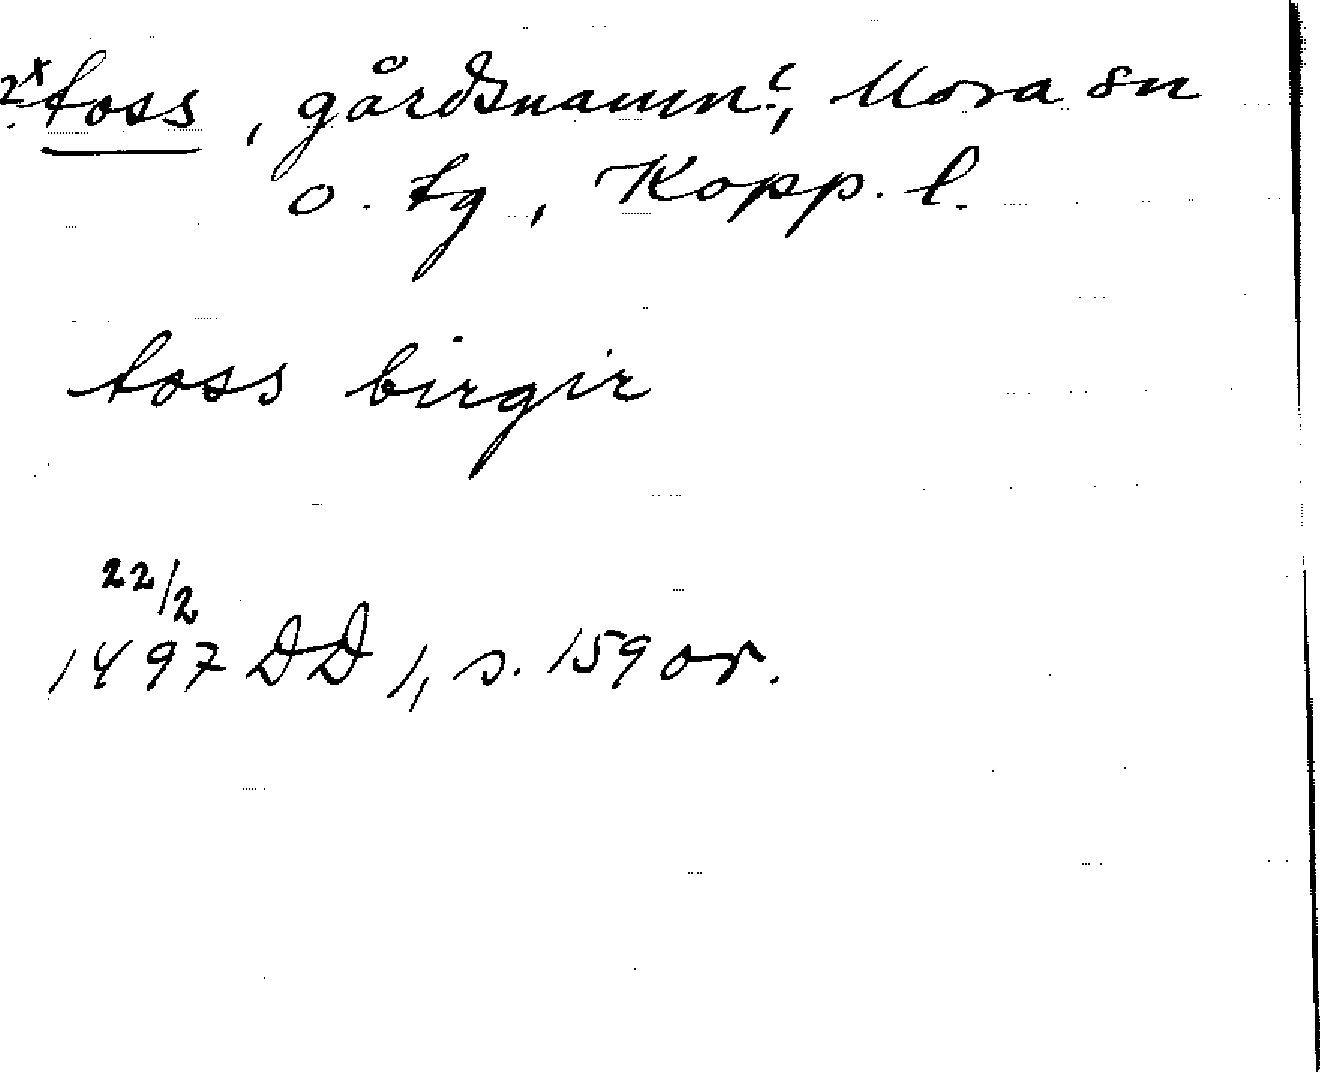 2x toss, gårdsnamn?, Mora sn
o. tg, Kopp. l.
toss birgir
22/2
1497 DD 1, s. 159 or.